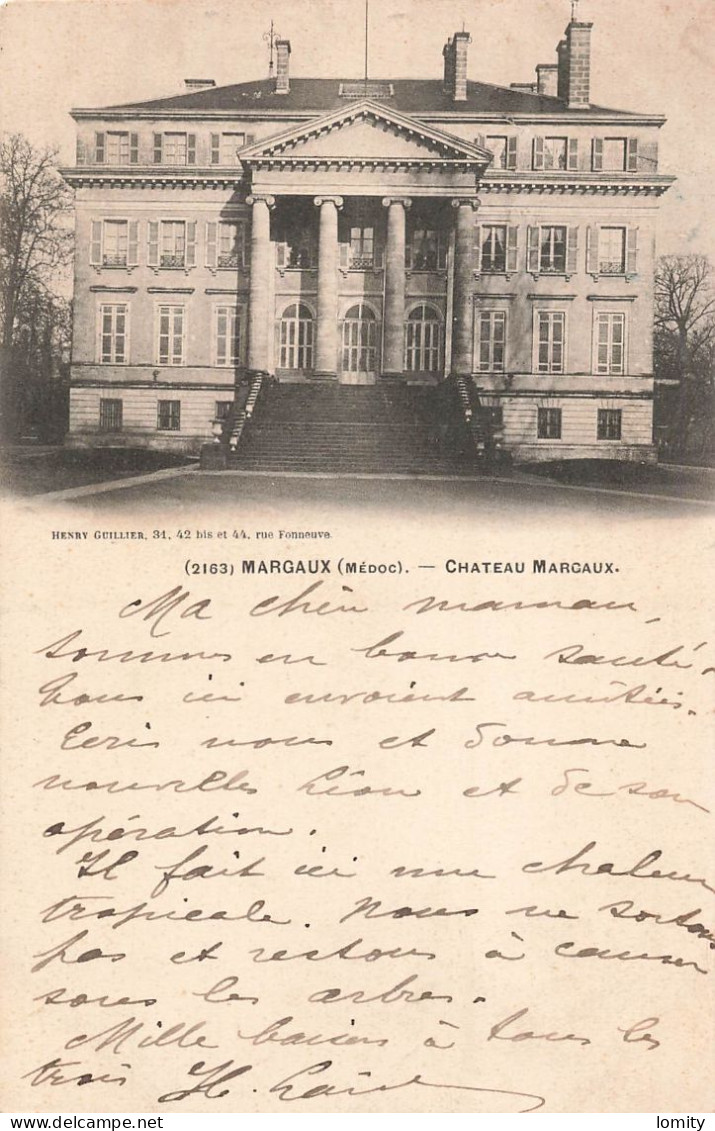 HENRY GUILLIER, 31, 42 bis et 44, rue Fonneuve.
(2163) MARGAUX (MÉDOC). — CHATEAU MARGAUX.
Ma chère maman,
sommes en bonne santé.
Tous ici envoient amitiés.
Ecris nous et donne
nouvelles Léon et de son
opération.
Il fait ici une chaleur
tropicale. Nous ne sortons
pas et restons à causer
sous les arbres.
Mille baisers à tous les
trois H.
delcampe.net
lomity